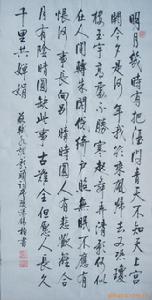 明月幾時有把酒問青天不知天上宮
闕今夕是何年我欲乘風歸去又恐瓊
樓玉宇高處不勝寒起舞弄清影何似
在人間轉朱閣低綺戶照無眠不應有
恨何事長向別時圓人有悲歡離合
月有陰晴圓缺此事古難全但願人長久
千里共嬋娟